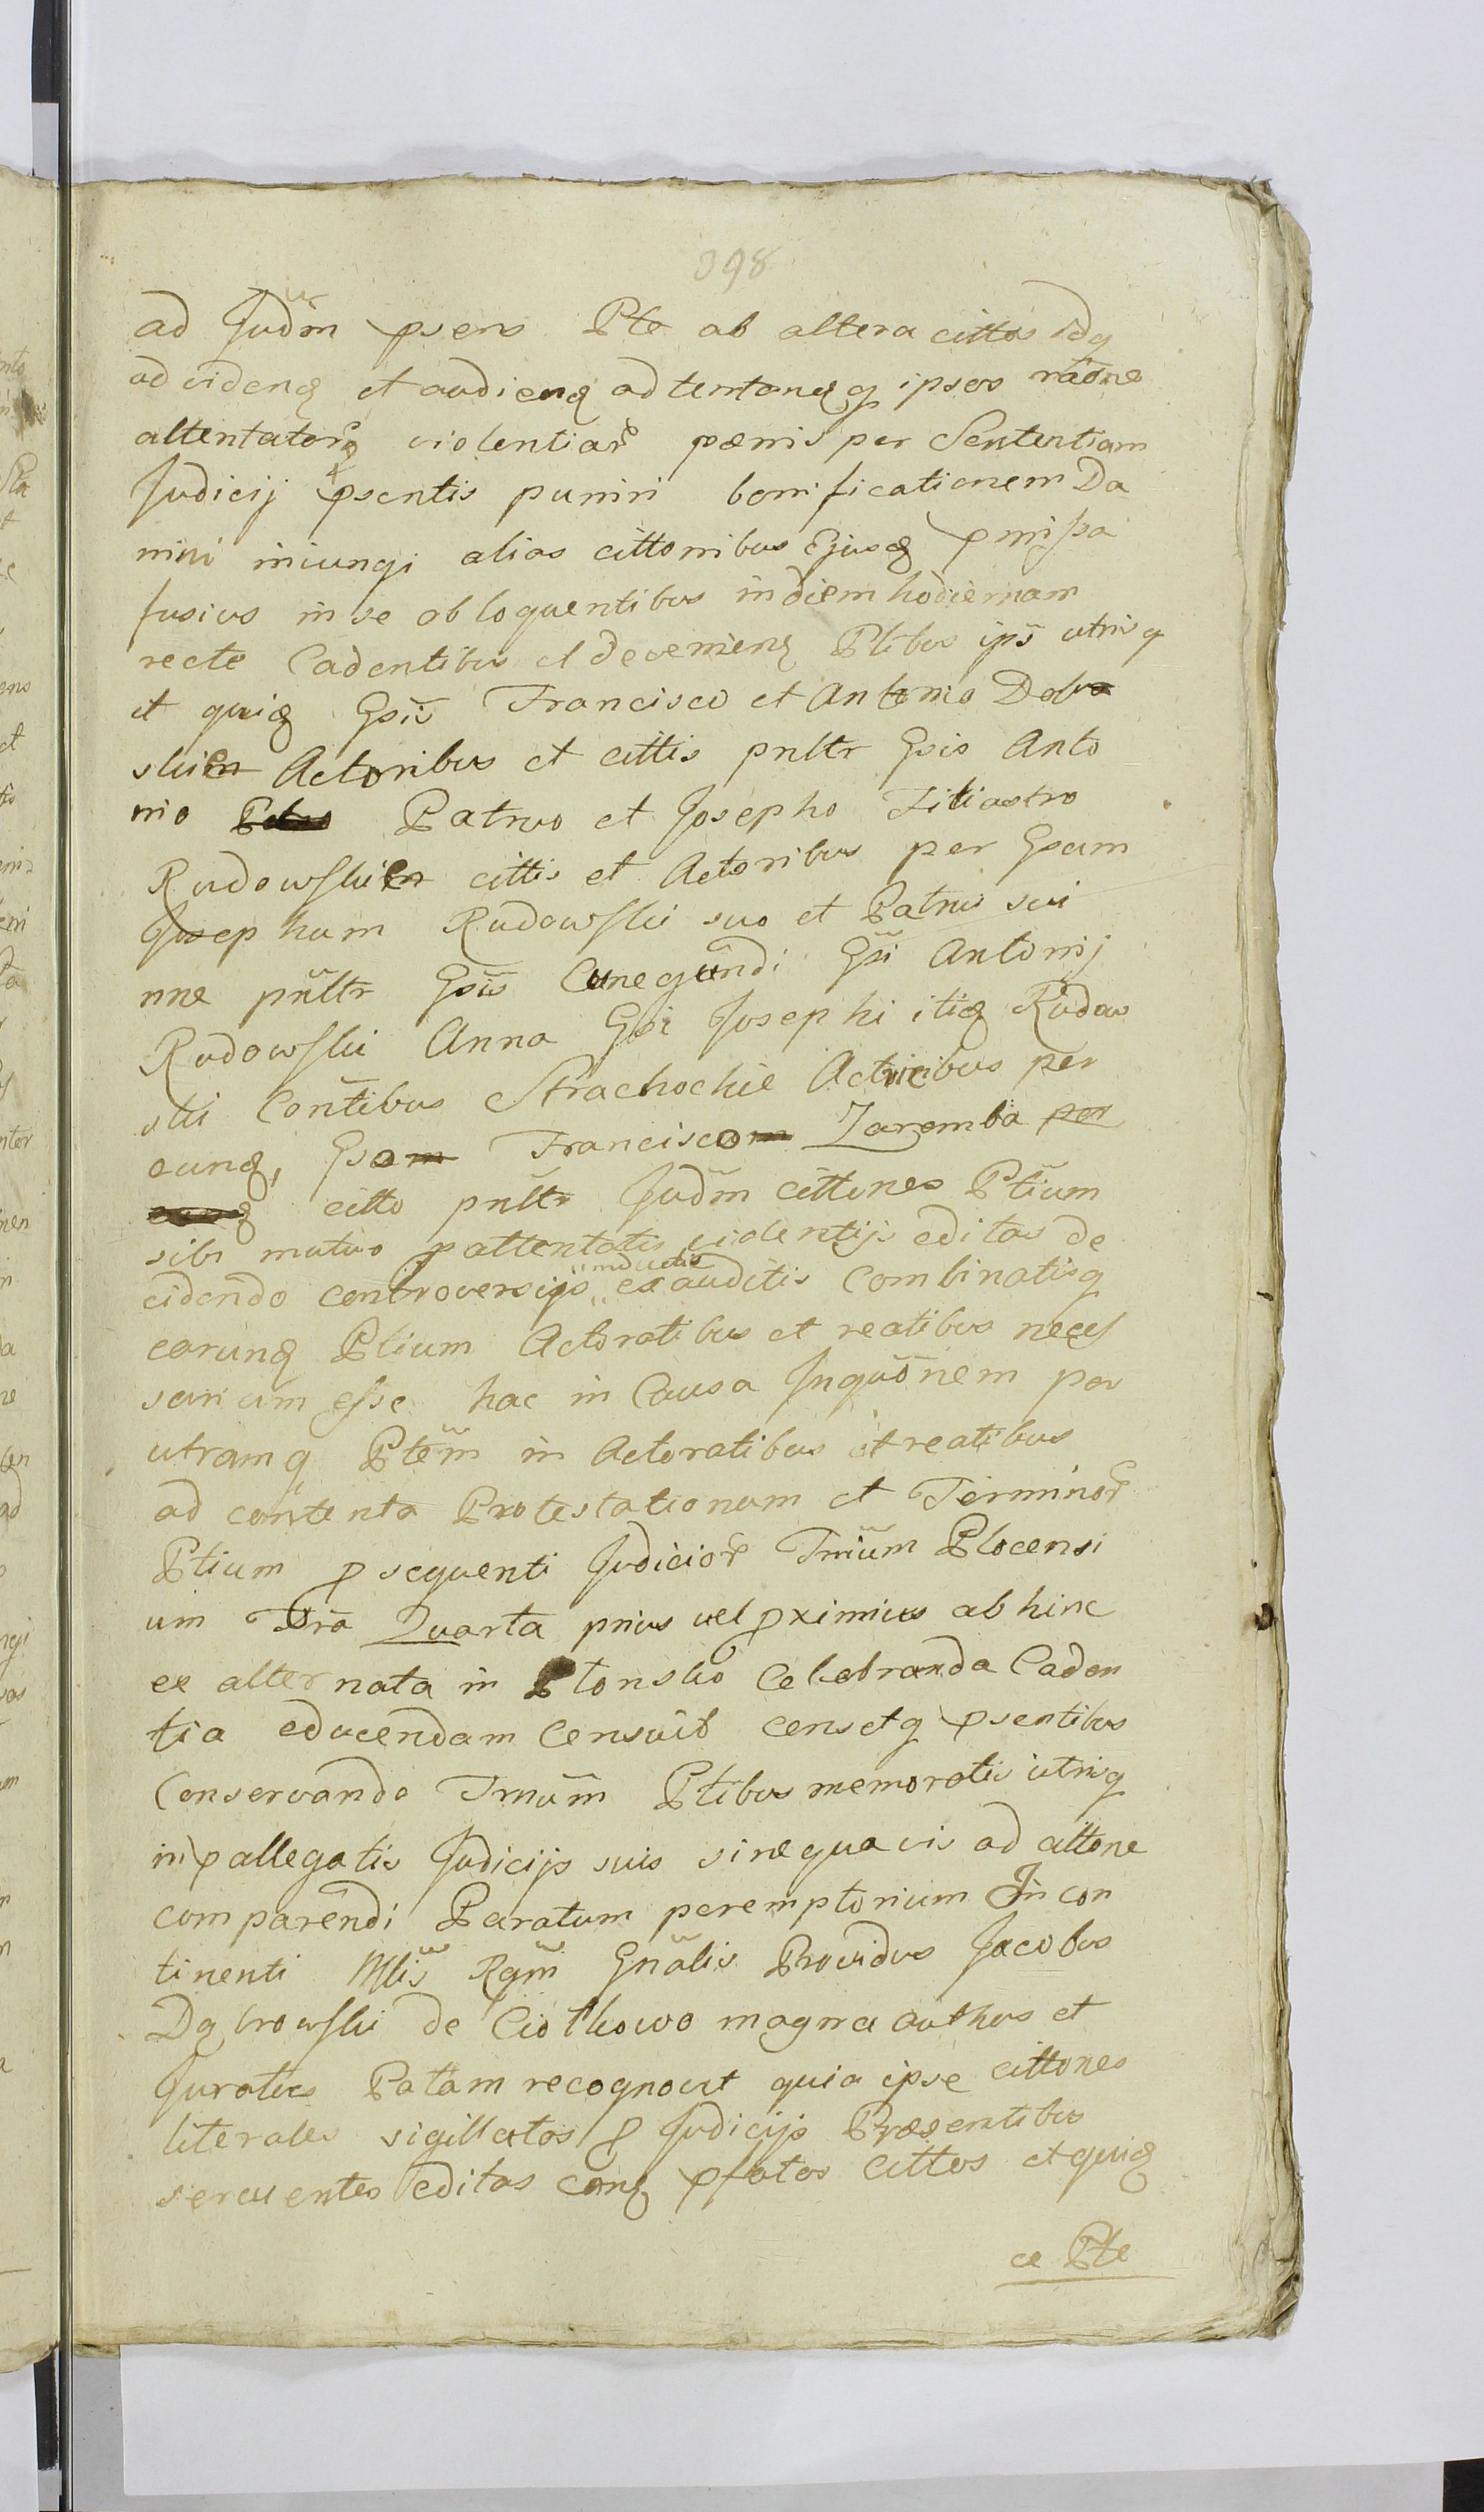 398
ad Judm psens Pte ab altera cittos idq
ad videnq et audienq ad tentonq q ipsos raone
attentatorq violentiar pœnis per Sententiam
Judicij psentis puniri bonificationem Da
mini iniungi alias cittonibus Ejusq pmissa
fusius in se obloquentibus in diem hodiernam
recte Cadentibus et devenienq Ptibus ips utrisq
et quiq Gsis Francisco et Antonio
Actoribus et cittis pnltr Gsis Anto
nio Patruo et Josepho Filiastro
Rudowskie cittis et Actoribus per Gsum
Josephum Rudowski suo et Patrui sui
nne pnltr Gsis Cunegundi Gsi Antonij
Rudowski Anna Gsi Josephi itiq Rudow
ski Contibus Strachockie Actricibus per
eunq, Gso Francisco Zaremba
citto pnltr Judm cittones Ptium
sibi mutuo p attentatis violentijs editas de
cidendo controversijs inductis exauditis Combinatisq
earunq Ptium Actoratibus et reatibus neces
sarium esse hac in Causa Inquonem per
utramq Ptem in Actoratibus et reatibus
ad contenta Protestationum et Terminor
Ptium p sequenti Judicior Trnum Plocensi
um Fria Quarta prius vel pximius ab hinc
ex alternata in Plonsko Celebranda Caden
tia educendam Censuit censetq psentibus
Conservando Trnum Ptibus memoratis utrisq
in pallegatis Judicijs suis sine quavis ad cittone
comparendi Paratum peremptorium In con
tinenti Mlis Rgni Gnalis Providus Jacobus
Dąbrowski de Ciołkowo magna authus et
Juratus Palam recognovit quia ipse cittones
literales sigillatas p Judicijs Præsentibus
servientes editas conq pfatos Cittos et quiq
ce Pte